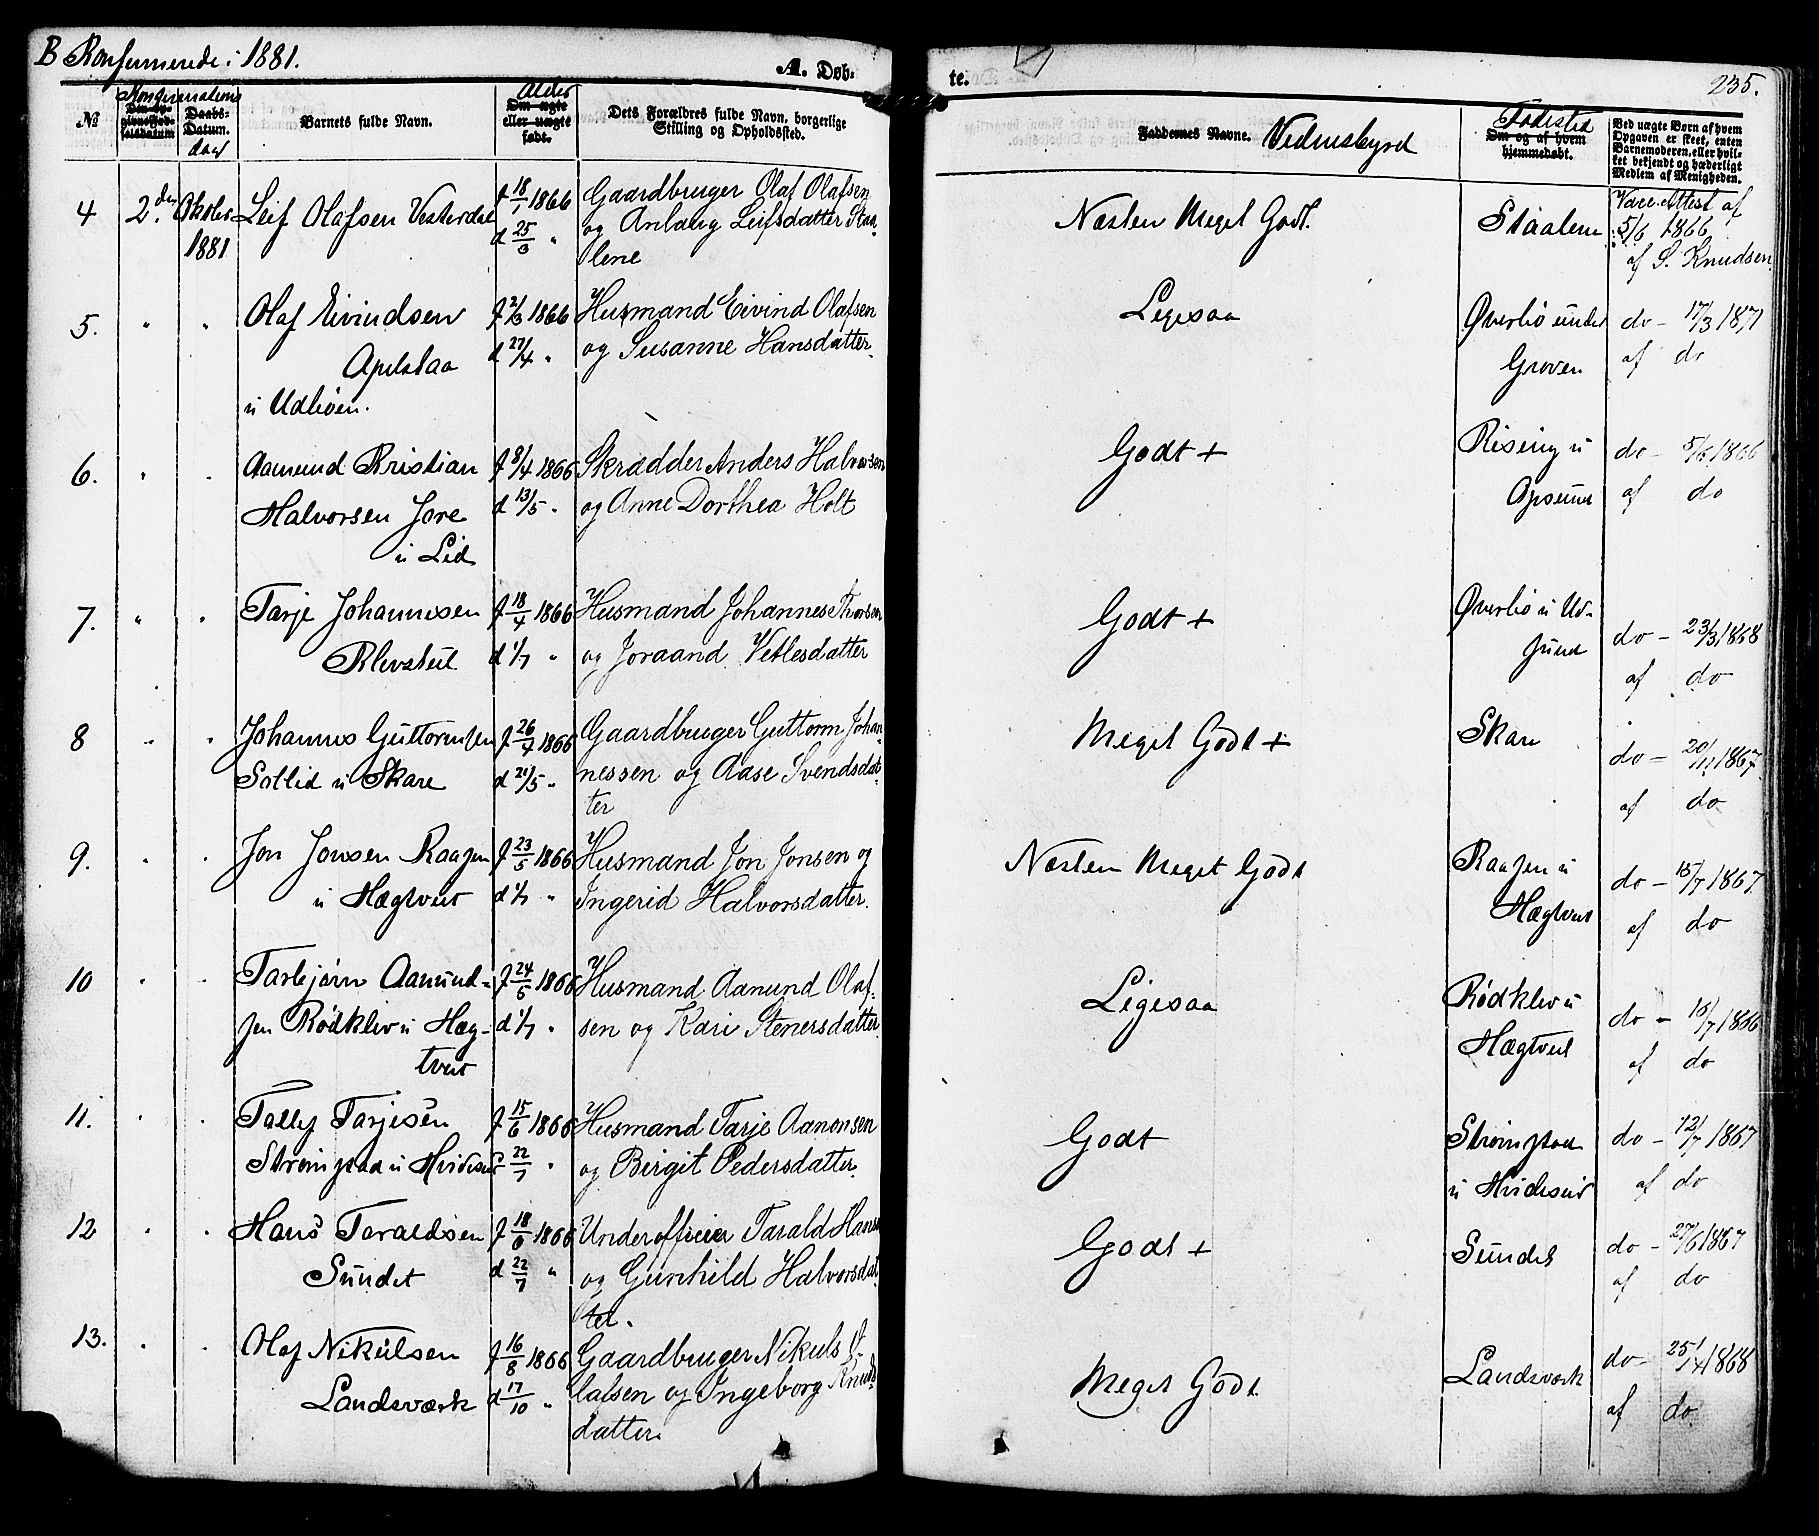 B Konfirmerede i 1881.
A. Døb-
te.
235.
№
Konfirmations
Daabs-
Datum.
dag
Barnets fulde Navn.
Alder
Om ægte
eller uægte
født.
Dets Forældres fulde Navn, borgerlige
Stilling og Opholdssted.
Faddernes Navne. Vidnesbyrd
Fødested
Om og af hvem
hjemmedøbt.
Ved uægte Børn af hvem
Opgaven er skeet, enten
Barnemoderen, eller hvil-
ket bekjendt og hæderligt
Medlem af Menigheden.
4 2den Oktober
1881
Leif Olafsen Vesterdal
f 18/1 1866
d 25/3 "
Gaardbruger Olaf Olafsen
og Anlaug Leifsdatter Staa-
lene
Næsten Meget Godt.
Staalene
Vacc. Attest af
5/6 1866
af S. Knudsen
5. " "
Olaf Eivindsen
Apelstaa
u Udbøen.
f 2/3 1866
d 27/4 "
Husmand Eivind Olafsen
og Susanne Hansdatter
Ligesaa
Øverbø under
Groven
do - 17/3 1871
af do
6. " "
Aamund Kristian
Halvorsen Jore
u Lid
f 8/4 1866
d 13/5 "
Skrædder Anders Halvorsen
og Anne Dorthea Holt
Godt +
Rising u
Opsund
do - 5/6 1866
af do
7. " "
Tarje Johannesen
Klevstul
f 18/4 1866
d 1/7 "
Husmand Johannes Thorsen
og Joraand Vetlesdatter
Godt +
Øverbø u Ud-
sund
do - 23/3 1868
af do
8 " "
Johannes Guttormsen
Sollid u Skare
f 26/4 1866
d 21/5 "
Gaardbruger Guttorm Johan-
nessen og Aase Svendsdat-
ter
Meget Godt +
Skare
do - 20/11 1867
af do
9. " "
Jon Jonsen Raasen
u Hægtveit
f 23/5 1866
d 1/7 "
Husmand Jon Jonsen og
Ingerid Halvorsdatter.
Næsten Meget Godt
Raasen u
Hægtveit
do - 15/7 1867
af do
10 " "
Tarbjørn Aamund-
sen Rødklev u Hæg-
tveit
f 24/5 1866
d 1/7 "
Husmand Aanund Olaf-
sen og Kari Stenersdatter
Ligesaa
Rødklev u
Hægtveit
do - 16/7 1866
af do
11. " "
Tallef Tarjesen
Strømstaa u Hvideseid
f 15/6 1866
22/7 "
Husmand Tarje Aanonsen
og Birgit Pedersdatter
Godt
Strømstaa
u Hvideseid
do - 12/7 1867
af do
12 " "
Hans Taraldsen
Sundet
f 18/6 1866
d 22/7 "
Underofficier Tarald Hansen
og Gunhild Halvorsdat-
ter.
Godt +
Sundet
do - 27/6 1867
af do
13. " "
Olaf Nikulsen
Landsværk
f 16/8 1866
d 17/10 "
Gaardbruger Nikuls O-
lafsen og Ingeborg Knuds-
datter.
Meget Godt
Landsværk
do - 1868
af do